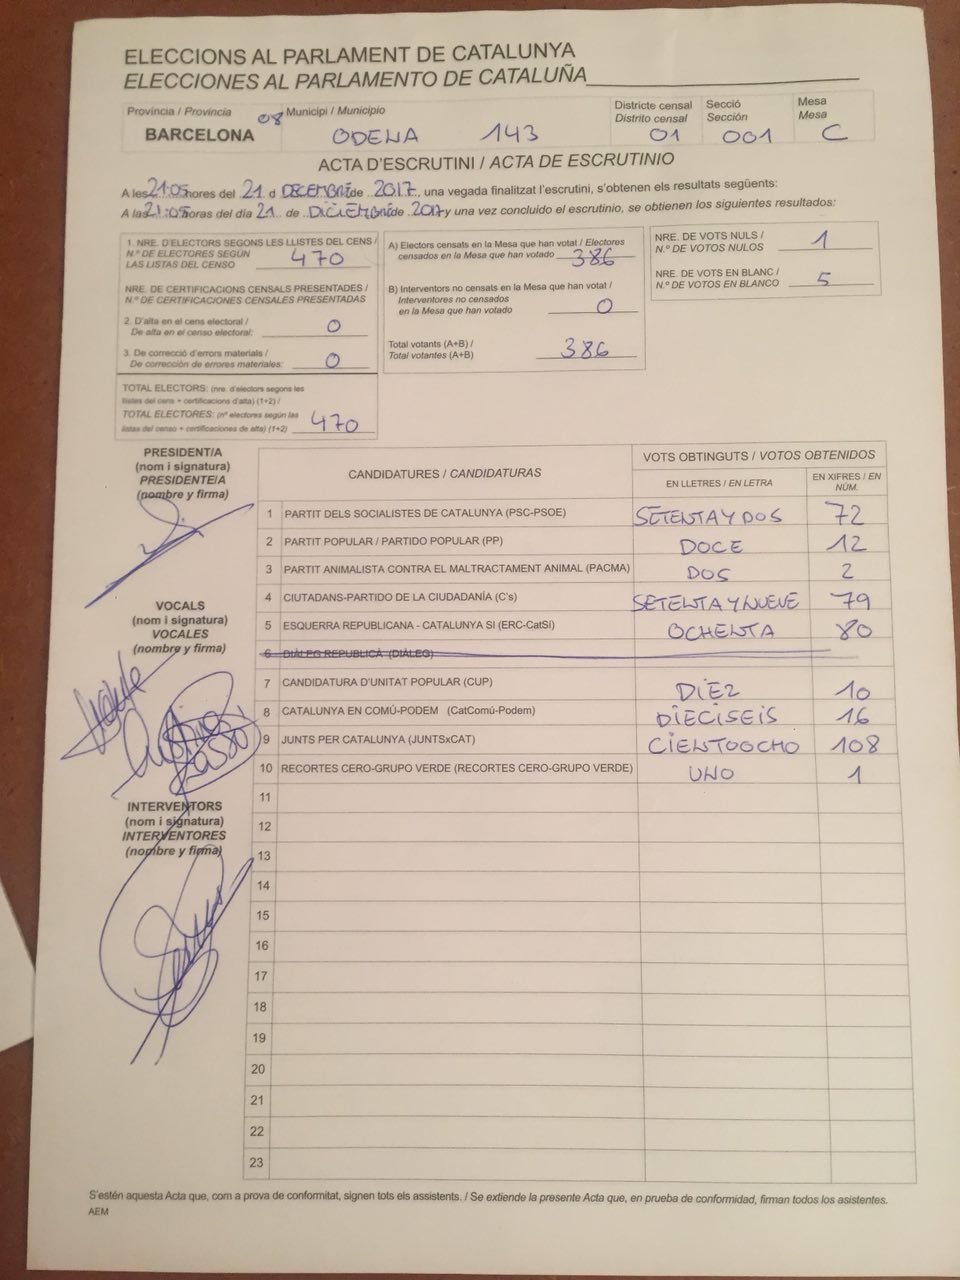 ELECCIONS AL PARLAMENT DE CATALUNYA
ELECCIONES AL PARLAMENTO DE CATALUÑA
Província / Provincia
BARCELONA
08
Municipi / Municipio
ODENA 143
Districte censal
Distrito censal
01
Secció
Sección
001
Mesa
Mesa
C
ACTA D'ESCRUTINI / ACTA DE ESCRUTINIO
A les 21:05 hores del 21 d DECEMBRE de 2017, una vegada finalitzat l'escrutini, s'obtenen els resultats següents:
A las 21:05 horas del día 21 de DICIEMBRE de 2017 y una vez concluido el escrutinio, se obtienen los siguientes resultados:
1. NRE. D'ELECTORS SEGONS LES LLISTES DEL CENS /
N.º DE ELECTORES SEGÚN
LAS LISTAS DEL CENSO 470
NRE. DE CERTIFICACIONS CENSALS PRESENTADES /
N.º DE CERTIFICACIONES CENSALES PRESENTADAS
2. D'alta en el cens electoral /
De alta en el censo electoral: 0
3. De correcció d'errors materials /
De corrección de errores materiales: 0
TOTAL ELECTORS: (nre. d'electors segons les
llistes del cens + certificacions d'alta) (1+2) /
TOTAL ELECTORES: (nº electores según las
listas del censo + certificaciones de alta) (1+2) 470
A) Electors censats en la Mesa que han votat / Electores
censados en la Mesa que han votado 386
B) Interventors no censats en la Mesa que han votat /
Interventores no censados
en la Mesa que han votado 0
Total votants (A+B) /
Total votantes (A+B) 386
NRE. DE VOTS NULS /
N.º DE VOTOS NULOS 1
NRE. DE VOTS EN BLANC /
N.º DE VOTOS EN BLANCO 5
PRESIDENT/A
(nom i signatura)
PRESIDENTE/A
(nombre y firma)
VOCALS
(nom i signatura)
VOCALES
(nombre y firma)
INTERVENTORS
(nom i signatura)
INTERVENTORES
(nombre y firma)
CANDIDATURES / CANDIDATURAS
VOTS OBTINGUTS / VOTOS OBTENIDOS
EN LLETRES / EN LETRA
EN XIFRES / EN
NÚM.
1 PARTIT DELS SOCIALISTES DE CATALUNYA (PSC-PSOE) SETENTA Y DOS 72
2 PARTIT POPULAR / PARTIDO POPULAR (PP) DOCE 12
3 PARTIT ANIMALISTA CONTRA EL MALTRACTAMENT ANIMAL (PACMA) DOS 2
4 CIUTADANS-PARTIDO DE LA CIUDADANÍA (C's) SETENTA Y NUEVE 79
5 ESQUERRA REPUBLICANA - CATALUNYA SI (ERC-CatSi) OCHENTA 80
6 DIÀLEG REPUBLICÀ (DIÀLEG)
7 CANDIDATURA D'UNITAT POPULAR (CUP) DIEZ 10
8 CATALUNYA EN COMÚ-PODEM (CatComú-Podem) DIECISEIS 16
9 JUNTS PER CATALUNYA (JUNTSxCAT) CIENTOOCHO 108
10 RECORTES CERO-GRUPO VERDE (RECORTES CERO-GRUPO VERDE) UNO 1
11
12
13
14
15
16
17
18
19
20
21
22
23
S'estén aquesta Acta que, com a prova de conformitat, signen tots els assistents. / Se extiende la presente Acta que, en prueba de conformidad, firman todos los asistentes.
AEM